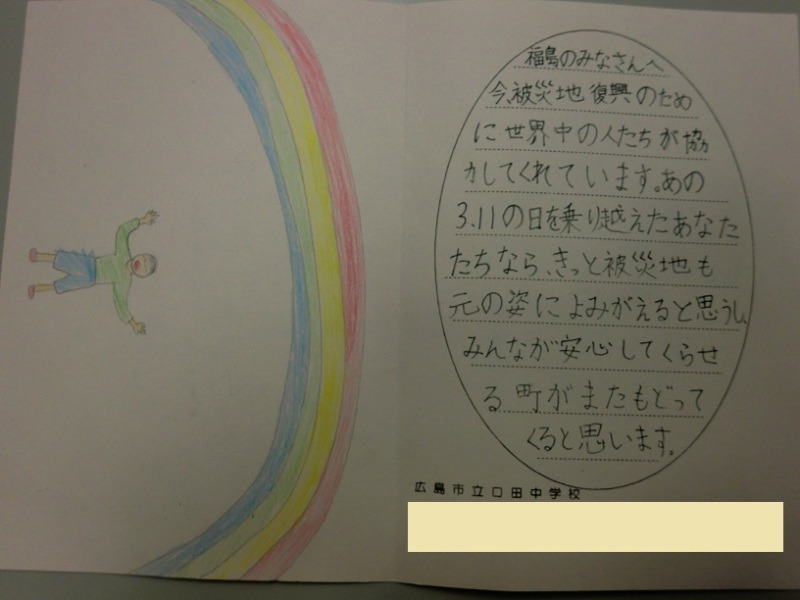 福島のみなさんへ
今、被災地復興のため
に世界中の人たちが協
力してくれています。あの
3.11の日を乗り越えたあなた
たちなら、きっと被災地も
元の姿によみがえると思うし、
みんなが安心してくらせ
る町がまたもどって
くると思います。
広島市立口田中学校